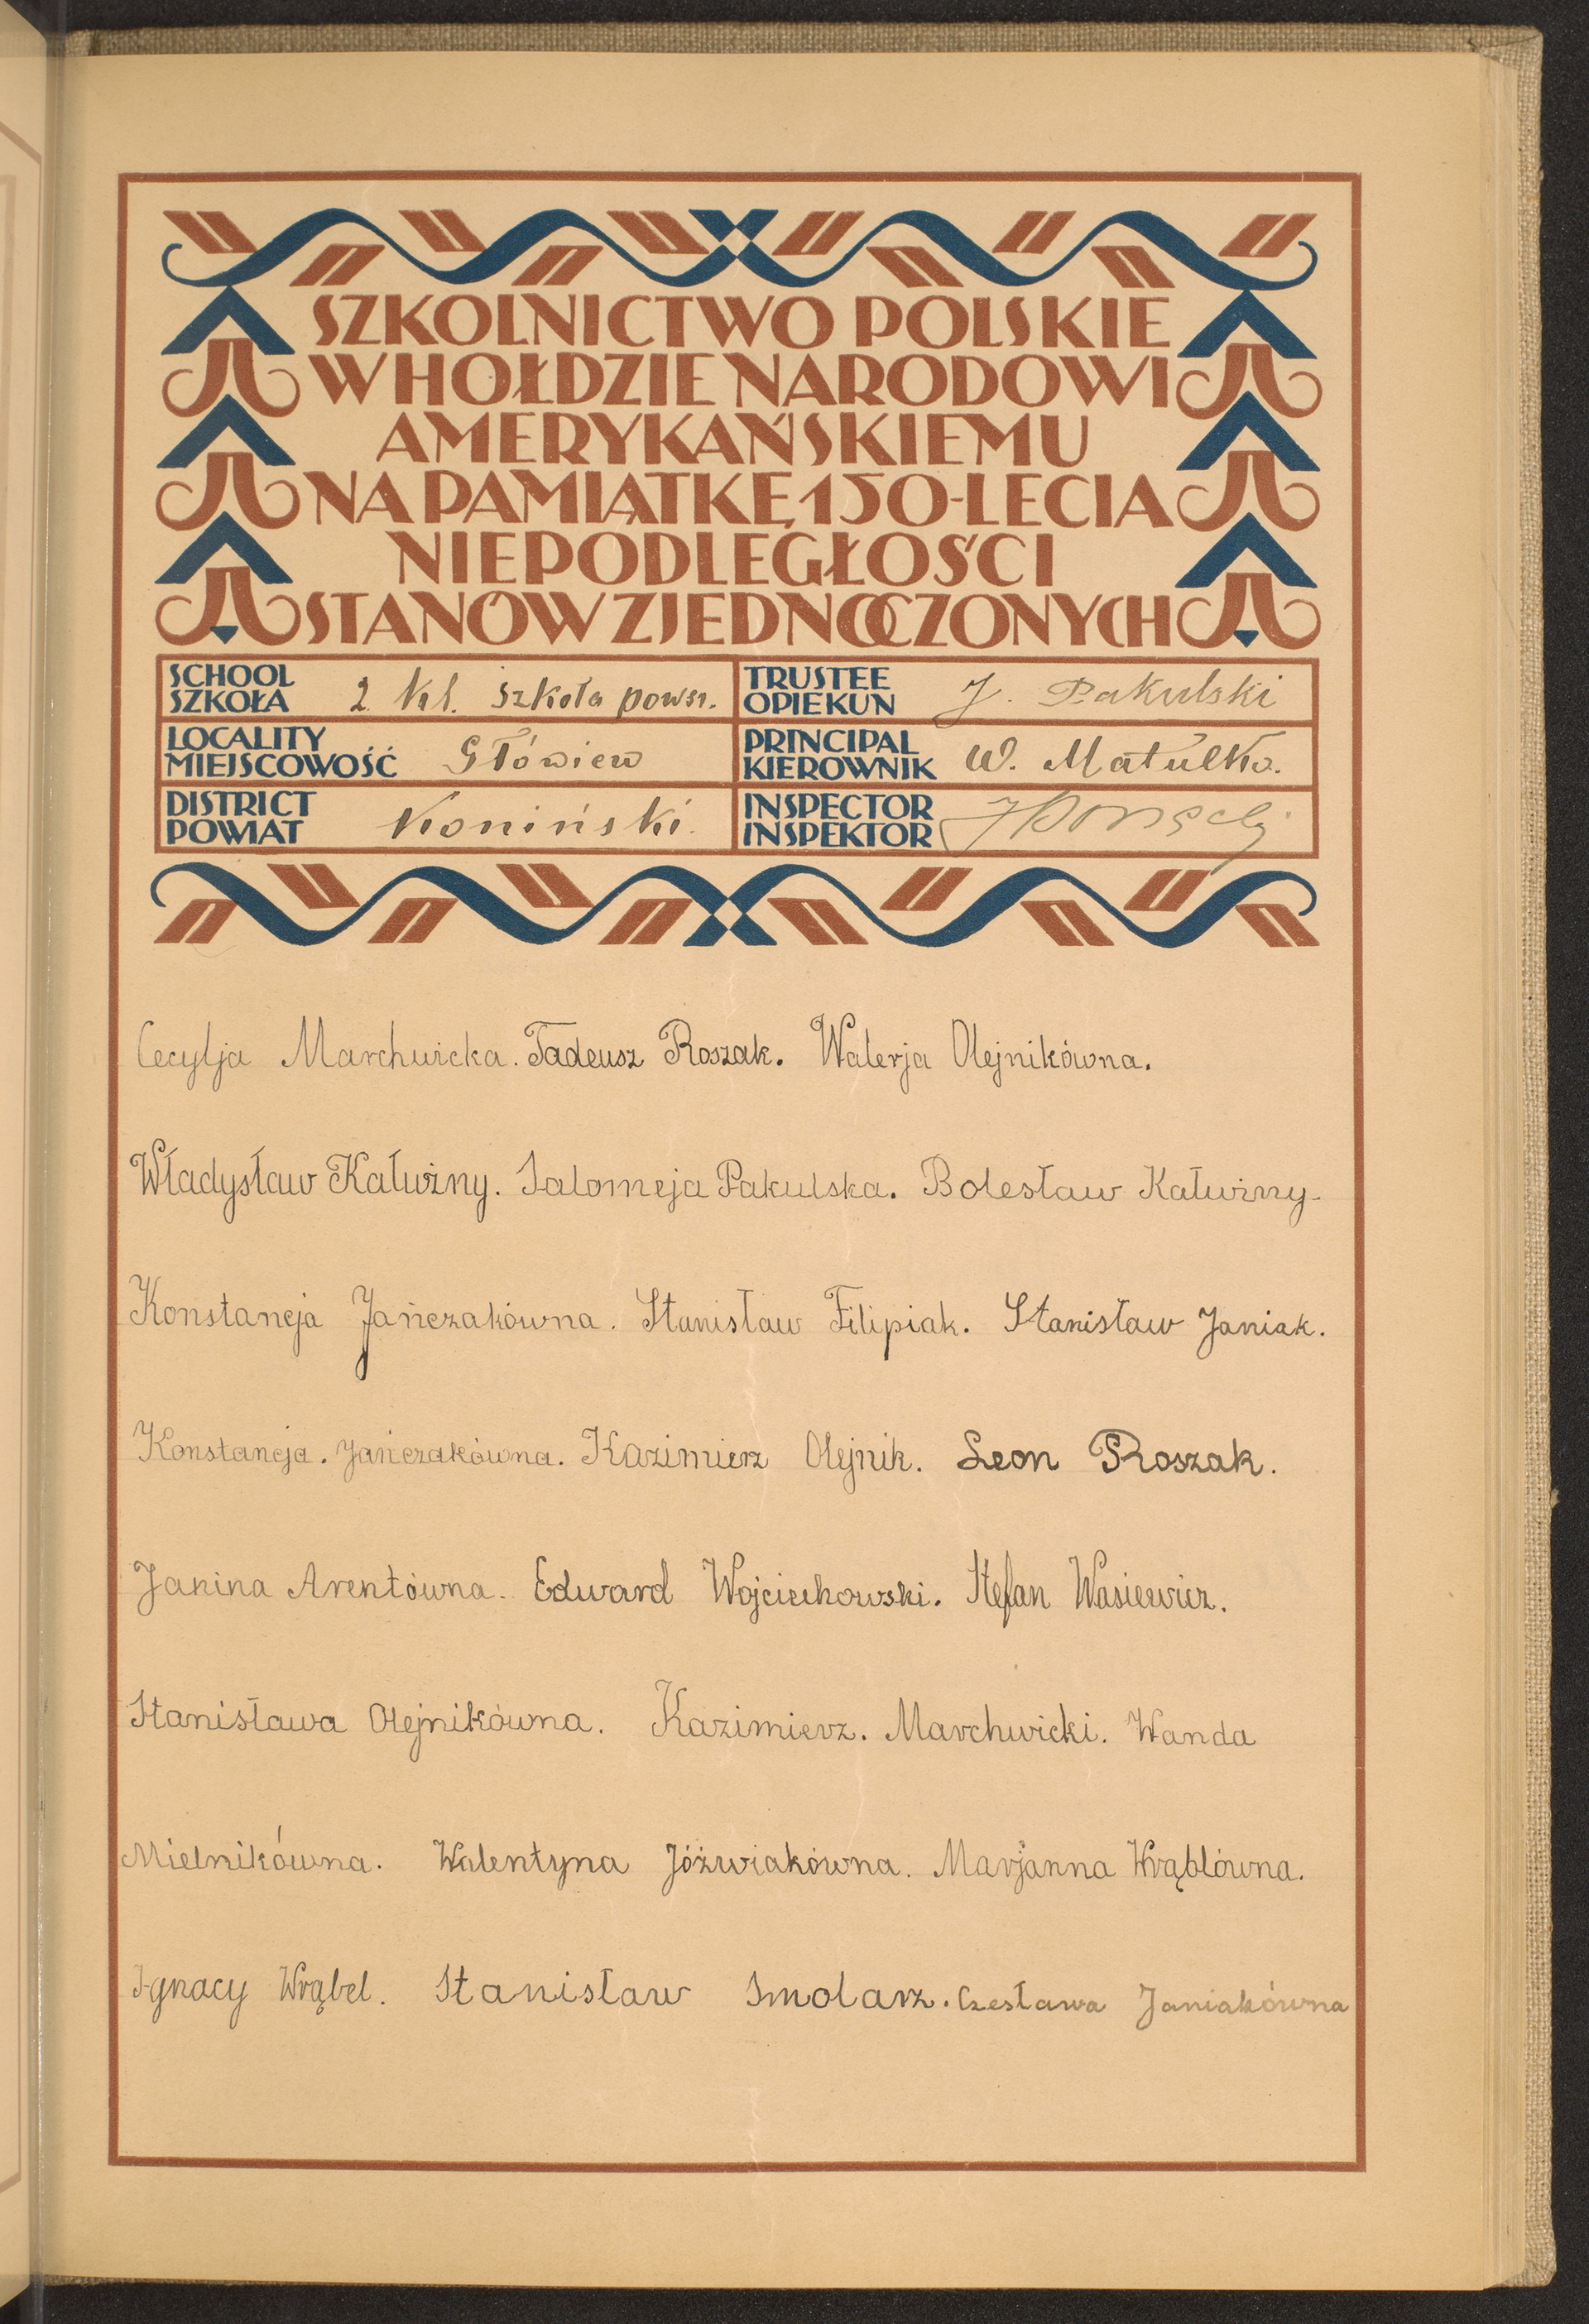 SZKOLNICTWO POLSKIE
W HOŁDZIE NARODOWI
AMERYKAŃSKIEMU
NA PAMIĄTKĘ 150-LECIA
NIEPODLEGŁOŚCI
STANÓW ZJEDNOCZONYCH
SCHOOL
SZKOŁA 2 kl. Szkoła powsz.
TRUSTEE
OPIEKUN J. Pakulski
LOCALITY
MIEJSCOWOŚĆ Główiew
PRINCIPAL
KIEROWNIK W. Matulko.
DISTRICT
POWIAT Koniński.
INSPECTOR
INSPEKTOR
Cecylja Marchwicka. Tadeusz Roszak. Walerja Olejnikówna.
Władysław Kałużny. Salomeja Pakulska. Bolesław Kałużny.
Konstancja Jańczakówna. Stanisław Filipiak. Stanisław Janiak.
Konstancja. Jańczakówna. Kazimierz Olejnik. Leon Roszak.
Janina Arentówna. Edward Wojciechowski. Stefan Wasiewicz.
Stanisława Olejnikówna. Kazimierz. Marchwicki. Wanda
Mielnikówna. Walentyna Jóźwiakówna. Marjanna Wrąblówna.
Ignacy Wrąbel. Stanisław Smolarz. Czesława Janiakówna